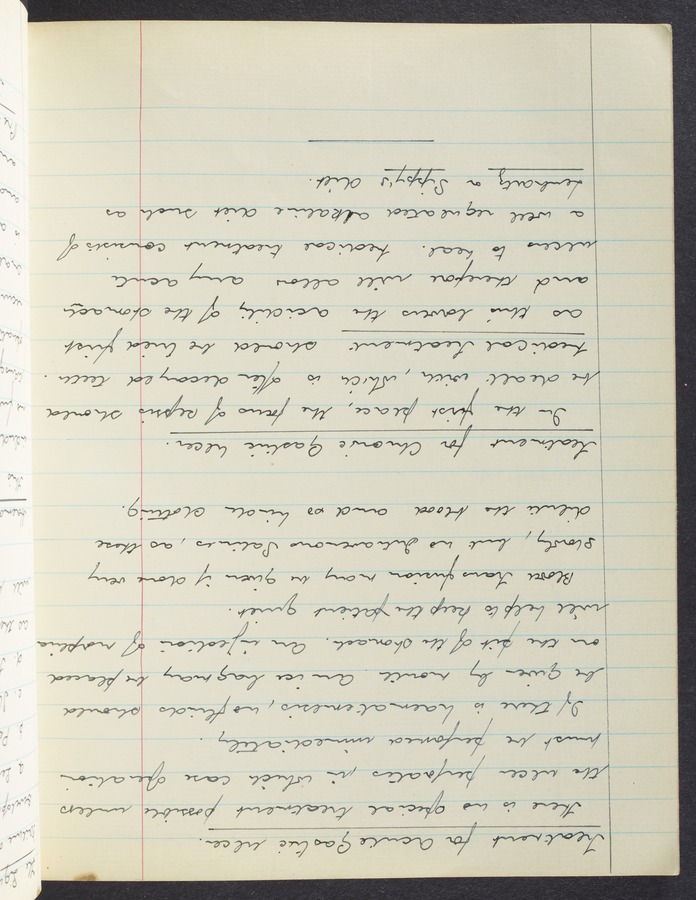 Treatment for Acute Gastric ulcer.
There is no special treatment possible unless
the ulcer perforates, in which case operation
must be performed immediately.
If there is haematemesis, no fluids should
be given by mouth. An ice bag may be placed
on the pit of the stomach. An injection of morphia
will help to keep the patient quiet.
Blood transfusion may be given if done very
slowly, but no Intravenous Salines, as these
dilute the blood and so hinder clotting.
Treatment for Chronic Gastric Ulcer.
In the first place, the focus of sepsis should
be dealt with, which is often decayed teeth.
Medical Treatment should be tried first
as this lowers the acidity of the stomach
and therefore will allow any acute
ulcers to heal. Medical treatment consists of
a well regulated alkaline diet such as
Lenhartz or Sippy's diet.